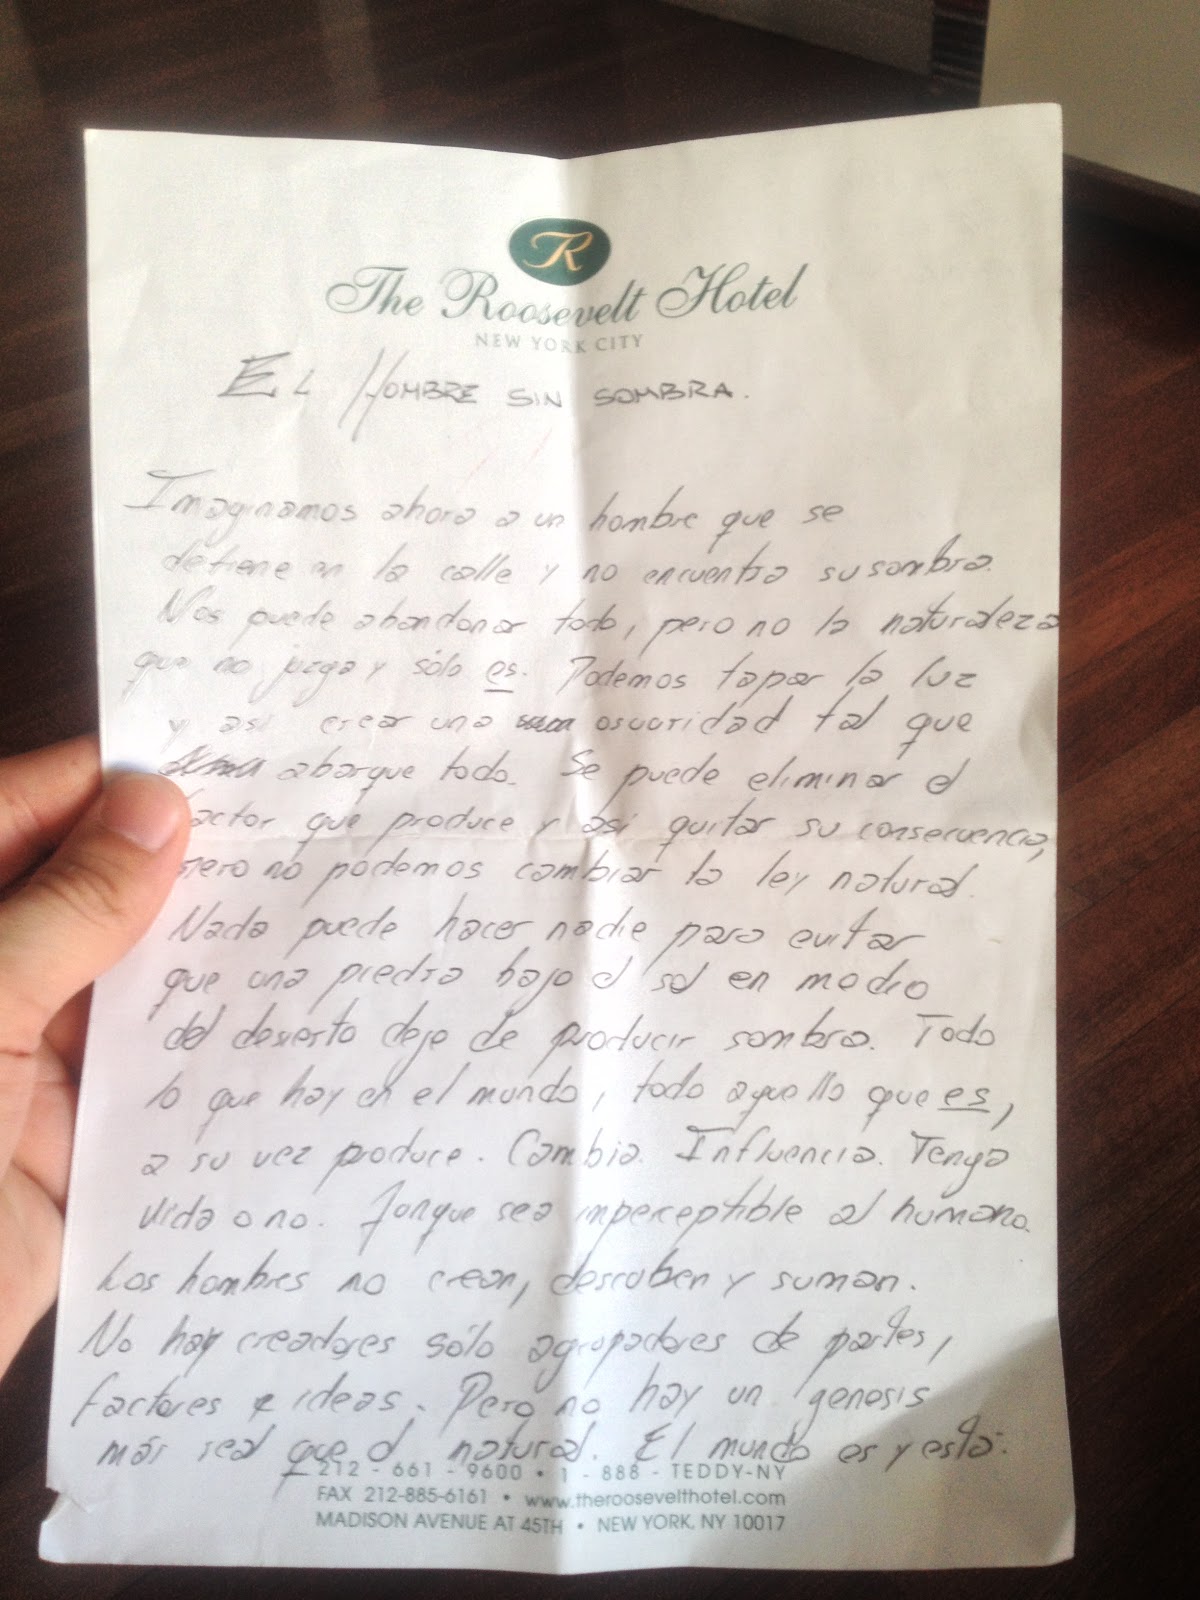 R
The Roosevelt Hotel
NEW YORK CITY
EL HOMBRE SIN SOMBRA.
Imaginamos ahora a un hombre que se
detiene en la calle y no encuentra su sombra.
Nos puede abandonar todo, pero no la naturaleza
que no juzga y sólo es. Podemos tapar la luz
y así crear una oscuridad tal que
abarque todo. Se puede eliminar el
factor que produce y así quitar su consecuencia,
pero no podemos cambiar la ley natural.
Nada puede hacer nadie para evitar
que una piedra bajo el sol en medio
del desierto deje de producir sombra. Todo
lo que hay en el mundo, todo aquello que es,
a su vez produce. Cambia. Influencia. Tenga
vida o no. Aunque sea imperceptible al humano.
Los hombres no crean, descuben y suman.
No hay creadores sólo agrupadores de partes,
factores e ideas. Pero no hay un genesis
más real que el natural. El mundo es y está.
212 - 661 - 9600 • 1 - 888 - TEDDY-NY
FAX 212-885-6161 • www.theroosevelthotel.com
MADISON AVENUE AT 45TH • NEW YORK, NY 10017